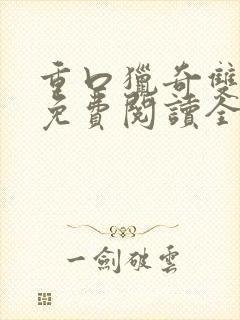 重口獵奇雙
免費閱讀全
一劍破雲